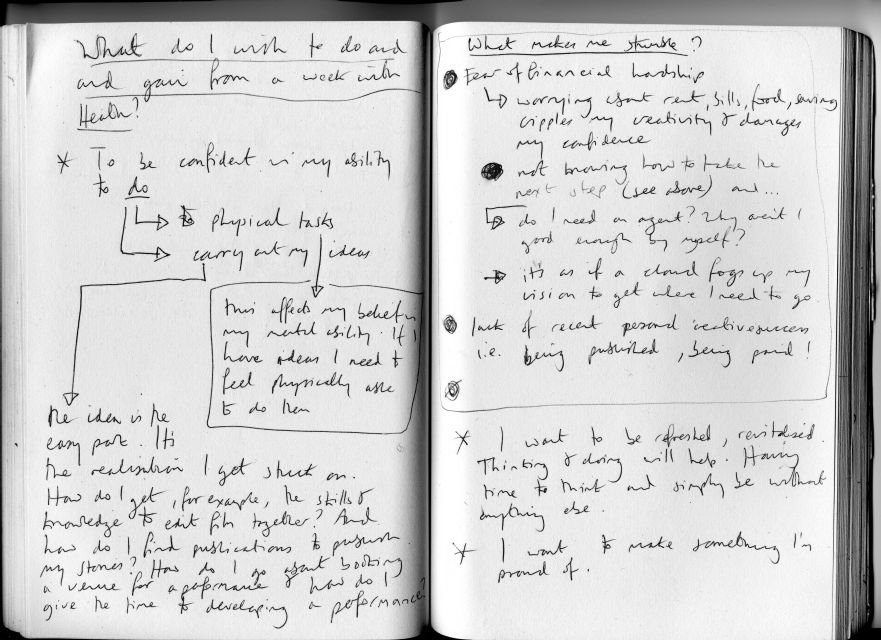 What do I wish to do and
and gain from a week with
Health?
* To be confident in my ability
to do
physical tasks
carry out my ideas
this affects my belief in
my mental ability. If I
have ideas I need to
feel physically able
to do them
the idea is the
easy part. It's
the realisation I get stuck on.
How do I get, for example, the skills &
knowledge to edit film together? And
how do I find publications to publish
my stories? How do I go about booking
a venue for a performance & how do I
give the time to developing a performance?
What makes me stumble?
Fear of financial hardship
worrying about rent, bills, food, saving
cripples my creativity & damages
my confidence
not knowing how to take the
next step (see above) and...
do I need an agent? Why aren't I
good enough by myself?
it's as if a cloud fogs up my
vision to get where I need to go.
lack of recent personal creative success
i.e. being published, being paid!
* I want to be refreshed, revitalised.
Thinking & doing will help. Having
time to think and simply be without
anything else.
* I want to make something I'm
proud of.